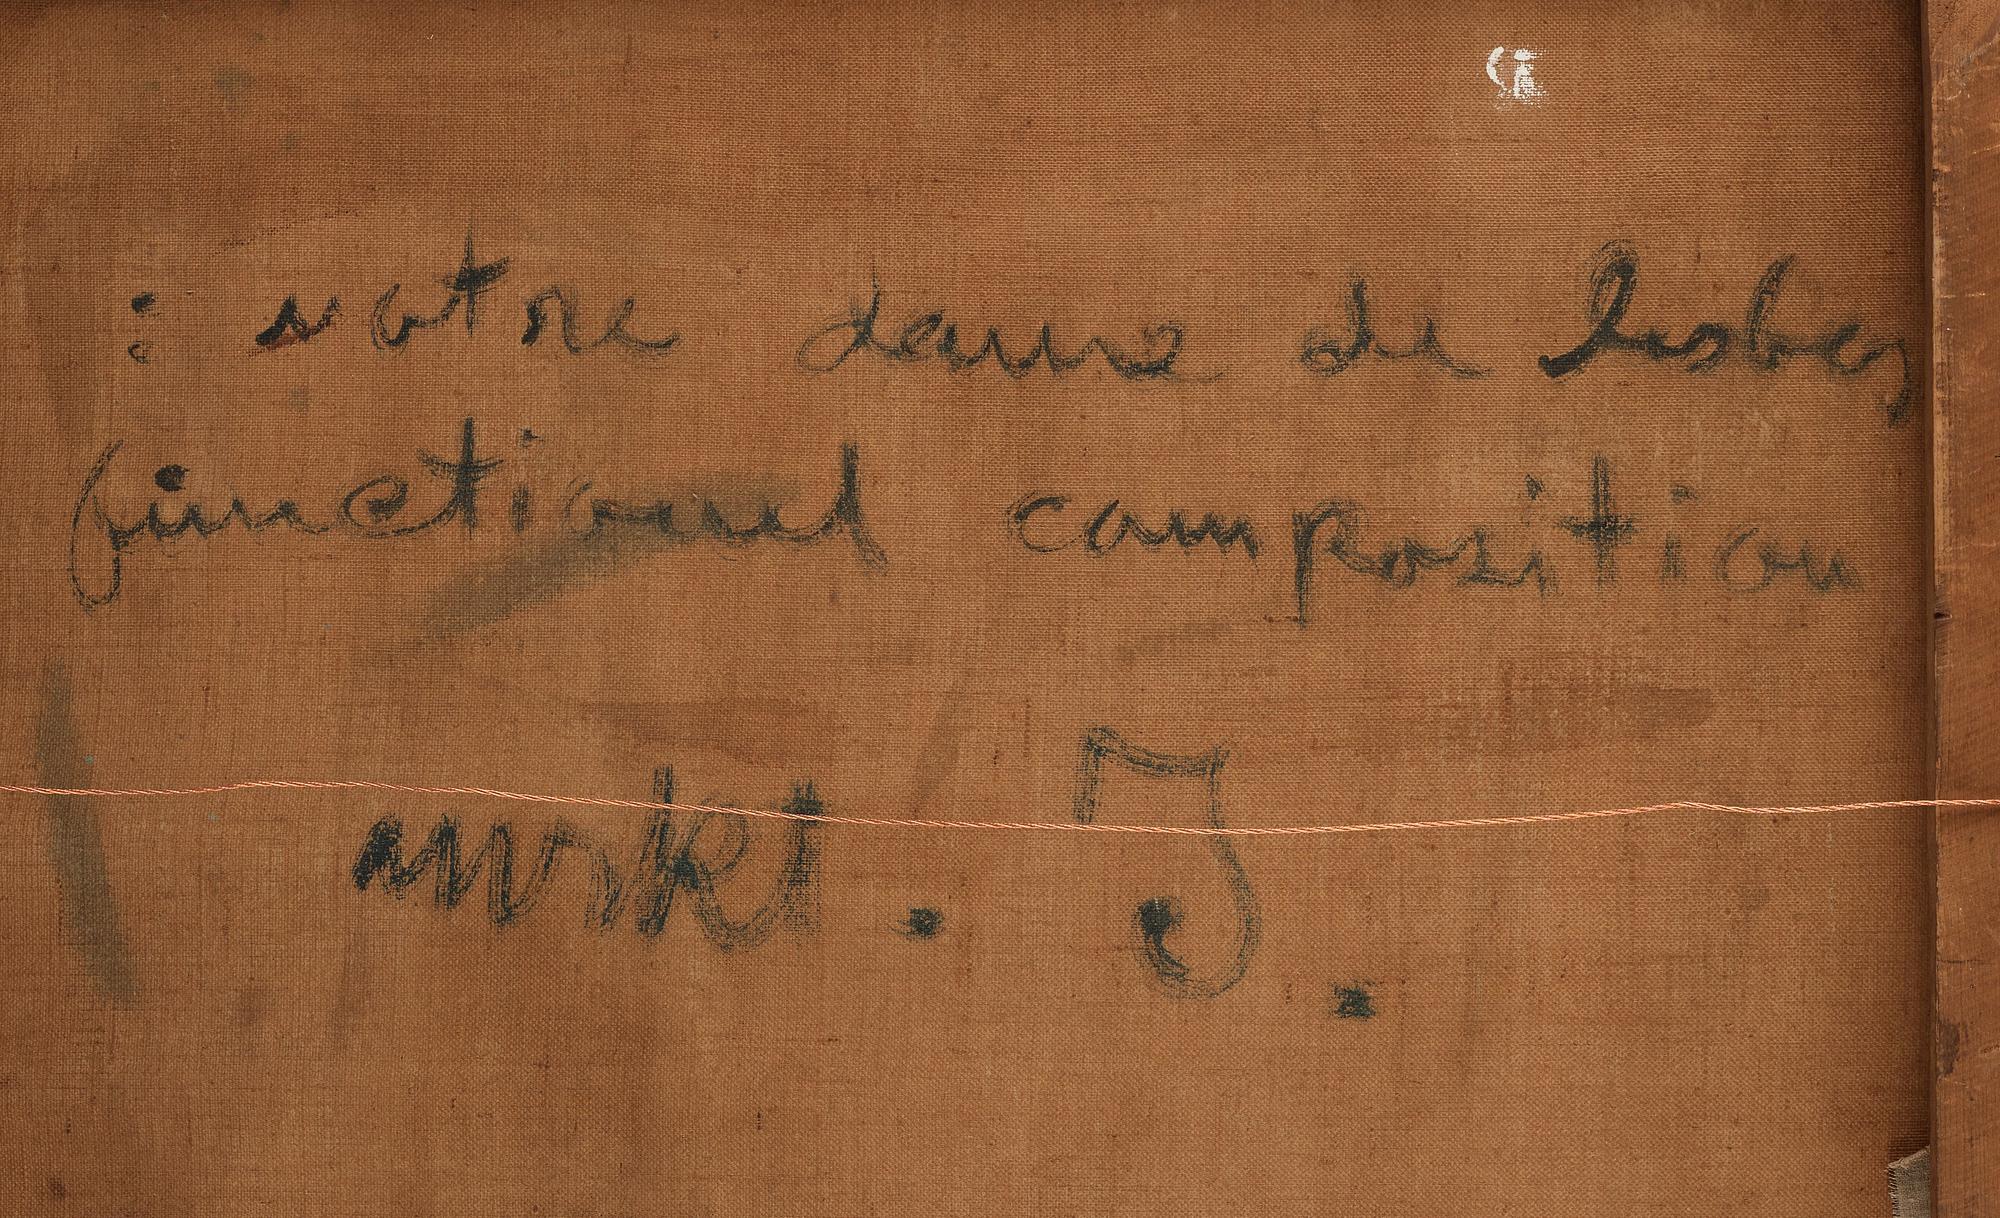 : notre dame de lisbo
functionel composition
J.